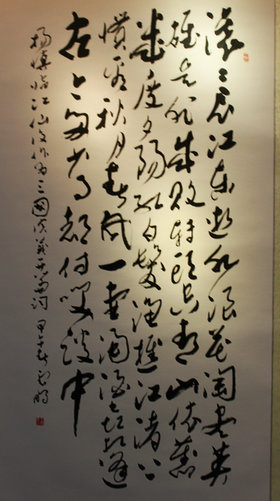 滚滚长江东逝水浪花淘尽英
雄是非成败转头空青山依旧
在几度夕阳红白发渔樵江渚上
惯看秋月春风一壶浊酒喜相逢
古今多少事都付笑谈中
杨慎临江仙后作为三国演义卷首词 甲午